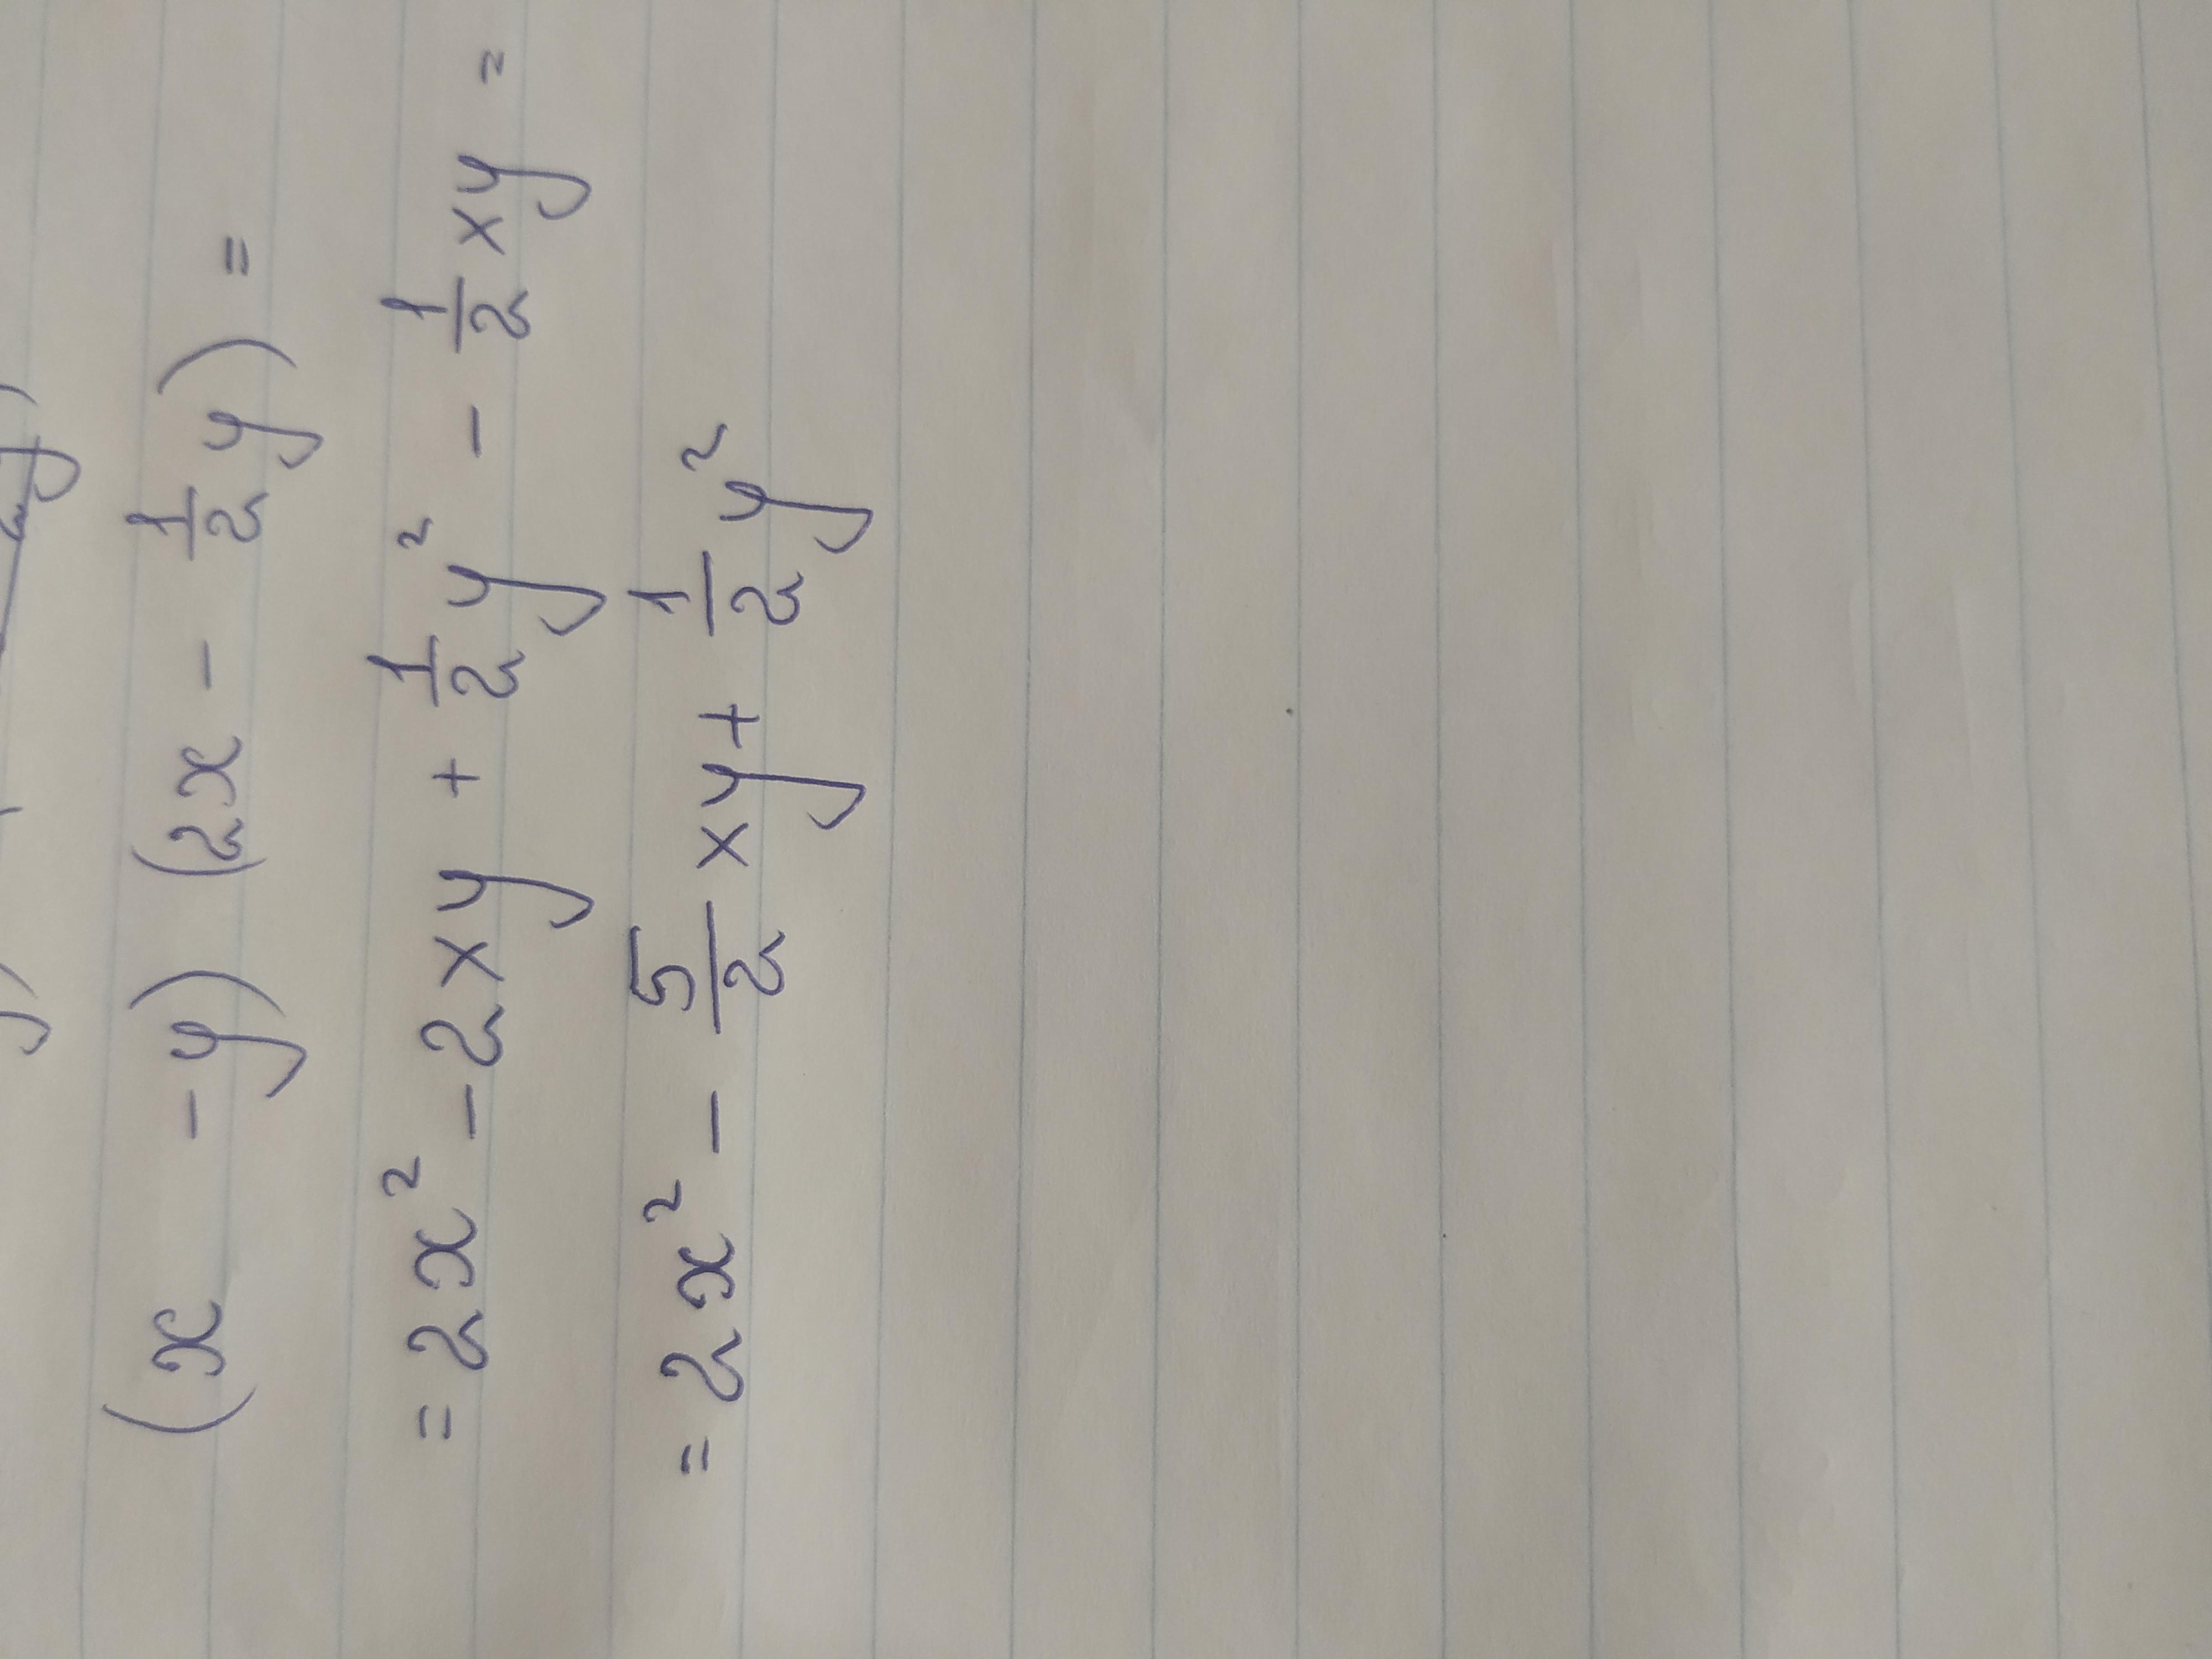 (x - y) (2x - 1/2 y) =
= 2x² - 2xy + 1/2 y² - 1/2 xy =
= 2x² - 5/2 xy + 1/2 y²